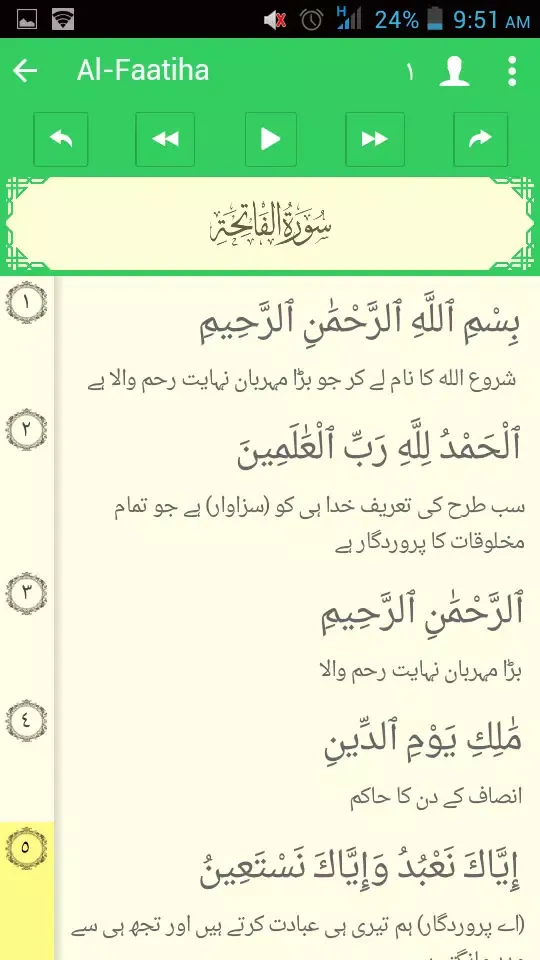 H 24% 9:51 AM
Al-Faatiha ١
سُورَةُ الفَاتِحَةِ
١
بِسْمِ ٱللَّهِ ٱلرَّحْمَٰنِ ٱلرَّحِيمِ
شروع الله کا نام لے کر جو بڑا مہربان نہایت رحم والا ہے
٢
ٱلْحَمْدُ لِلَّهِ رَبِّ ٱلْعَٰلَمِينَ
سب طرح کی تعریف خدا ہی کو (سزاوار) ہے جو تمام
مخلوقات کا پروردگار ہے
٣
ٱلرَّحْمَٰنِ ٱلرَّحِيمِ
بڑا مہربان نہایت رحم والا
٤
مَٰلِكِ يَوْمِ ٱلدِّينِ
انصاف کے دن کا حاکم
٥
إِيَّاكَ نَعْبُدُ وَإِيَّاكَ نَسْتَعِينُ
(اے پروردگار) ہم تیری ہی عبادت کرتے ہیں اور تجھ ہی سے